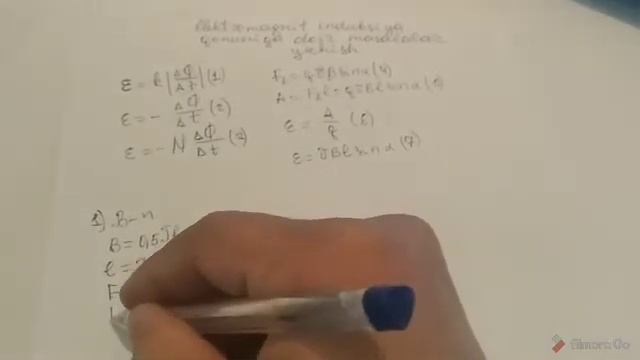 Elektromagnit induksiya
qonuniga doir masalalar
yechish
ε = k |ΔΦ/Δt| (1)
ε = - ΔΦ/Δt (2)
ε = - N ΔΦ/Δt (3)
F_L = qϑBsinα (4)
A = F_L ℓ = qϑBℓsinα (5)
ε = A/q (6)
ε = ϑBℓsinα (7)
1). B-n
B = 0,5 Tl
ℓ =
F